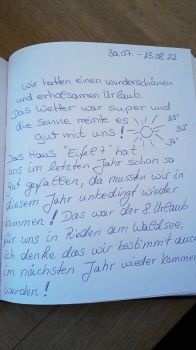 30.07. - 13.08.22
Wir hatten einen wunderschönen
und erholsamen Urlaub.
Das Wetter war super und
die Sonne meinte es
gut mit uns!
38°
30°
34°
Das Haus "Eifel 7" hat
uns im letzten Jahr schon so
gut gefallen, da mussten wir in
diesem Jahr unbedingt wieder
kommen! Das war der 8. Urlaub
für uns in Rieden am Waldsee,
ich denke das wir bestimmt auch
im nächsten Jahr wieder kommen
werden!